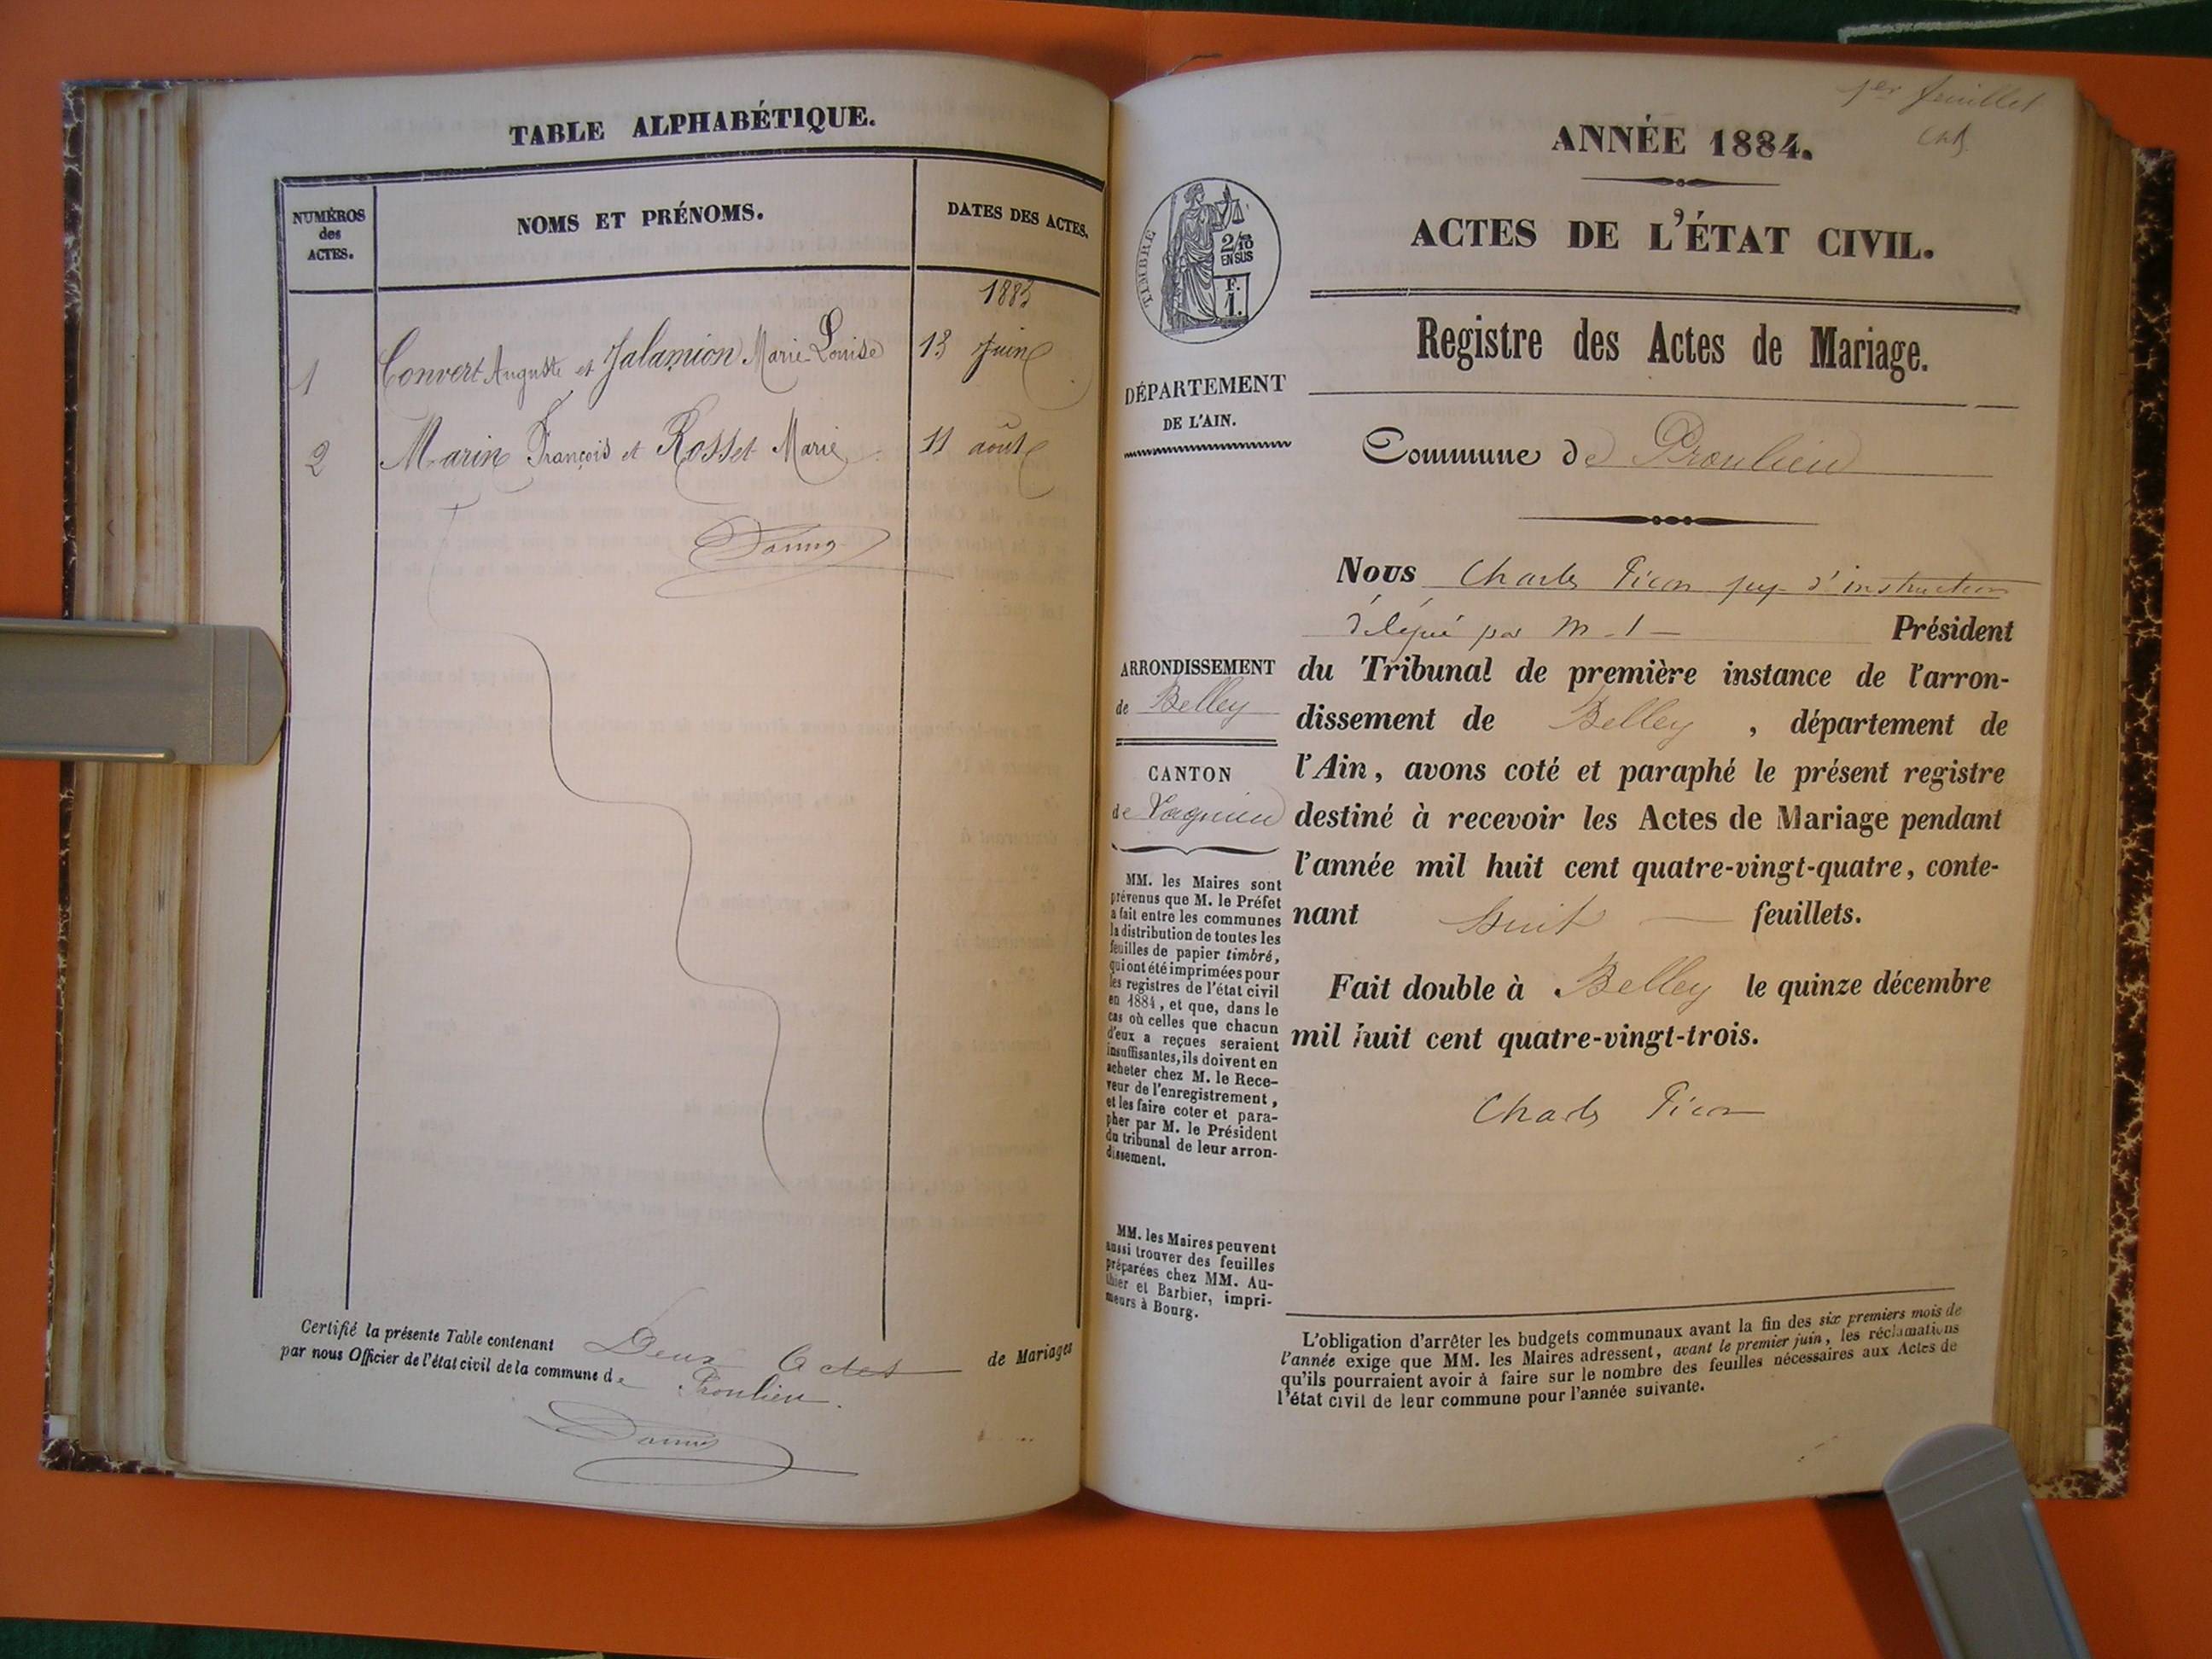 TABLE ALPHABÉTIQUE.
NUMÉROS
des
ACTES.
NOMS ET PRÉNOMS.
DATES DES ACTES.
1883
1 Convert Auguste et Jalamion Marie Louise 13 Juin
2 Marin François et Rosset Marie 11 août
Certifié la présente Table contenant Deux Actes de Mariages
par nous Officier de l'état civil de la commune de Proulieu.
1er feuillet
ANNÉE 1884.
ACTES DE L'ÉTAT CIVIL.
TIMBRE
2/10
EN SUS
F.
1.
Registre des Actes de Mariage.
DÉPARTEMENT
DE L'AIN.
Commune de Proulieu
Nous Charles Picon juge d'instruction
délégué par M. l Président
ARRONDISSEMENT
de Belley
CANTON
de Lagnieu
du Tribunal de première instance de l'arron-
dissement de Belley, département de
l'Ain, avons coté et paraphé le présent registre
destiné à recevoir les Actes de Mariage pendant
l'année mil huit cent quatre-vingt-quatre, conte-
nant huit feuillets.
Fait double à Belley le quinze décembre
mil huit cent quatre-vingt-trois.
Charles Picon
MM. les Maires sont
prévenus que M. le Préfet
a fait entre les communes
la distribution de toutes les
feuilles de papier timbré,
qui ont été imprimées pour
les registres de l'état civil
en 1884, et que, dans le
cas où celles que chacun
d'eux a reçues seraient
insuffisantes, ils doivent en
acheter chez M. le Rece-
veur de l'enregistrement,
et les faire coter et para-
pher par M. le Président
du tribunal de leur arron-
dissement.
MM. les Maires peuvent
aussi trouver des feuilles
préparées chez MM. Au-
thier et Barbier, impri-
meurs à Bourg.
L'obligation d'arrêter les budgets communaux avant la fin des six premiers mois de
l'année exige que MM. les Maires adressent, avant le premier juin, les réclamations
qu'ils pourraient avoir à faire sur le nombre des feuilles nécessaires aux Actes de
l'état civil de leur commune pour l'année suivante.